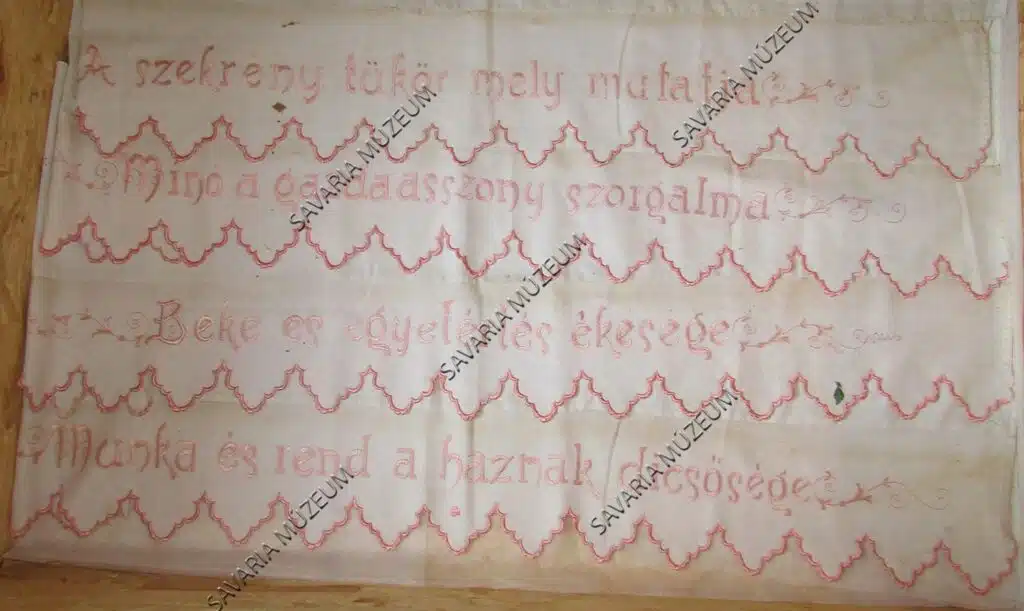 A szekreny tükör mely mutatja
Mino a gazdadsszony szorgalma
Beke es egyetértés ékesege
Munka és rend a haznak dicsősége
SAVARIA MÚZEUM
SAVARIA MÚZEUM
SAVARIA MÚZEUM
SAVARIA MÚZEUM
SAVARIA MÚZEUM